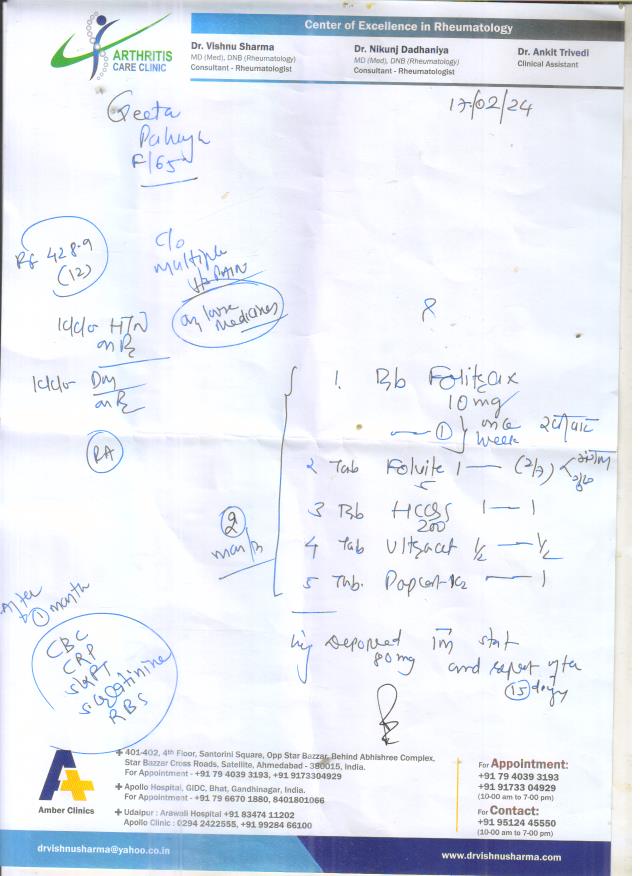 Center of Excellence in Rheumatology
ARTHRITIS
CARE CLINIC
Dr. Vishnu Sharma
MD (Med), DNB (Rheumatology)
Consultant - Rheumatologist
Dr. Nikunj Dadhaniya
MD (Med), DNB (Rheumatology)
Consultant - Rheumatologist
Dr. Ankit Trivedi
Clinical Assistant
17/02/24
Geeta
F/65
RF 428.9
(12)
c/o
multiple
PAIN
on
medicines
k/c/o HTN
on Rx
k/c/o Dm
on Rx
RA
1. Folitrax
10 mg
① once
week
2 Tab Folvite 1 — (2/7)
5
3 HCQS 1 — 1
200
4 Tab Ultracet ½ — ½
5 Tab. — 1
2
After
① month
CBC
CRP
SGPT
S creatinine
RBS
Inj Depomed IM stat
80 mg and repeat after
15 days
401-402, 4th Floor, Santorini Square, Opp Star Bazzar, Behind Abhishree Complex,
Star Bazzar Cross Roads, Satellite, Ahmedabad - 380015, India.
For Appointment - +91 79 4039 3193, +91 9173304929
Apollo Hospital, GIDC, Bhat, Gandhinagar, India.
For Appointment - +91 79 6670 1880, 8401801066
Udaipur : Arawali Hospital +91 83474 11202
Apollo Clinic : 0294 2422555, +91 99284 66100
Amber Clinics
For Appointment:
+91 79 4039 3193
+91 91733 04929
(10-00 am to 7-00 pm)
For Contact:
+91 95124 45550
(10-00 am to 7-00 pm)
drvishnusharma@yahoo.co.in
www.drvishnusharma.com